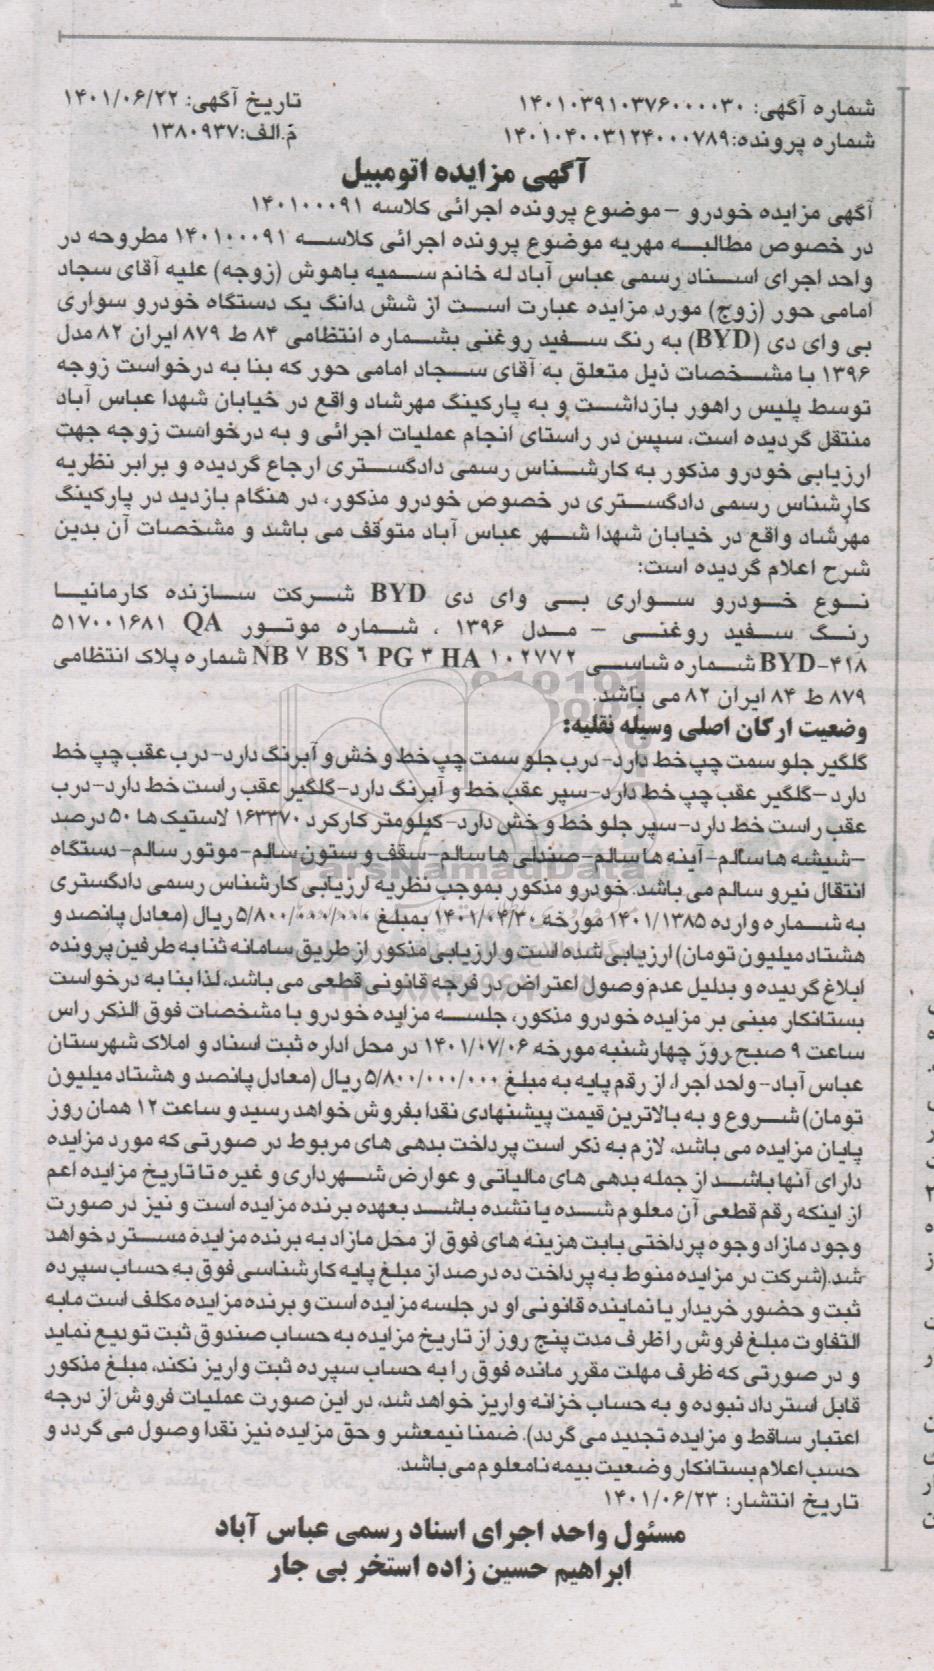 شماره آگهی: ۱۴۰۱۰۳۹۱۰۳۷۶۰۰۰۰۳۰
تاریخ آگهی: ۱۴۰۱/۰۶/۲۲
شماره پرونده:۱۴۰۱۰۴۰۰۳۱۲۴۰۰۰۷۸۹
م.الف:۱۳۸۰۹۳۷
آگهی مزایده اتومبیل
آگهی مزایده خودرو – موضوع پرونده اجرائی کلاسه ۱۴۰۱۰۰۰۹۱
در خصوص مطالبه مهریه موضوع پرونده اجرائی کلاسه ۱۴۰۱۰۰۰۹۱ مطروحه در
واحد اجرای اسناد رسمی عباس آباد له خانم سمیه باهوش (زوجه) علیه آقای سجاد
امامی حور (زوج) مورد مزایده عبارت است از شش دانگ یک دستگاه خودرو سواری
بی وای دی (BYD) به رنگ سفید روغنی بشماره انتظامی ۸۴ ط ۸۷۹ ایران ۸۲ مدل
۱۳۹۶ با مشخصات ذیل متعلق به آقای سجاد امامی حور که بنا به درخواست زوجه
توسط پلیس راهور بازداشت و به پارکینگ مهرشاد واقع در خیابان شهدا عباس آباد
منتقل گردیده است، سپس در راستای انجام عملیات اجرائی و به درخواست زوجه جهت
ارزیابی خودرو مذکور به کارشناس رسمی دادگستری ارجاع گردیده و برابر نظریه
کارشناس رسمی دادگستری در خصوص خودرو مذکور، در هنگام بازدید در پارکینگ
مهرشاد واقع در خیابان شهدا شهر عباس آباد متوقف می باشد و مشخصات آن بدین
شرح اعلام گردیده است:
نوع خودرو سواری بی وای دی BYD شرکت سازنده کارمانیا
رنگ سفید روغنی – مدل ۱۳۹۶ ، شماره موتور ۵۱۷۰۰۱۶۸۱ QA
BYD-۴۱۸ شماره شاسی NB ۷ BS ۶ PG ۳ HA ۱۰۲۷۷۲ شماره پلاک انتظامی
۸۷۹ ط ۸۴ ایران ۸۲ می باشد.
وضعیت ارکان اصلی وسیله نقلیه:
گلگیر جلو سمت چپ خط دارد- درب جلو سمت چپ خط و خش و آبرنگ دارد- درب عقب چپ خط
دارد –گلگیر عقب چپ خط دارد-سپر عقب خط و آبرنگ دارد-گلگیر عقب راست خط دارد-درب
عقب راست خط دارد-سپر جلو خط و خش دارد-کیلومتر کارکرد ۱۶۳۳۷۰ لاستیک ها ۵۰ درصد
–شیشه ها سالم- آینه ها سالم-صندلی ها سالم-سقف و ستون سالم-موتور سالم-دستگاه
انتقال نیرو سالم می باشد. خودرو مذکور بموجب نظریه ارزیابی کارشناس رسمی دادگستری
به شماره وارده ۱۴۰۱/۱۳۸۵ مورخه ۱۴۰۱/۰۴/۳۰ بمبلغ ۵/۸۰۰/۰۰۰/۰۰۰ ریال (معادل پانصد و
هشتاد میلیون تومان) ارزیابی شده است و ارزیابی مذکور از طریق سامانه ثنا به طرفین پرونده
ابلاغ گردیده و بدلیل عدم وصول اعتراض در فرجه قانونی قطعی می باشد، لذا بنا به درخواست
بستانکار مبنی بر مزایده خودرو مذکور، جلسه مزایده خودرو با مشخصات فوق الذکر راس
ساعت ۹ صبح روز چهارشنبه مورخه ۱۴۰۱/۰۷/۰۶ در محل اداره ثبت اسناد و املاک شهرستان
عباس آباد- واحد اجرا، از رقم پایه به مبلغ ۵/۸۰۰/۰۰۰/۰۰۰ ریال (معادل پانصد و هشتاد میلیون
تومان) شروع و به بالاترین قیمت پیشنهادی نقدا بفروش خواهد رسید و ساعت ۱۲ همان روز
پایان مزایده می باشد، لازم به ذکر است پرداخت بدهی های مربوط در صورتی که مورد مزایده
دارای آنها باشد از جمله بدهی های مالیاتی و عوارض شهرداری و غیره تا تاریخ مزایده اعم
از اینکه رقم قطعی آن معلوم شده یا نشده باشد بعهده برنده مزایده است و نیز در صورت
وجود مازاد وجوه پرداختی بابت هزینه های فوق از محل مازاد به برنده مزایده مسترد خواهد
شد.(شرکت در مزایده منوط به پرداخت ده درصد از مبلغ پایه کارشناسی فوق به حساب سپرده
ثبت و حضور خریدار یا نماینده قانونی او در جلسه مزایده است و برنده مزایده مکلف است مابه
التفاوت مبلغ فروش را ظرف مدت پنج روز از تاریخ مزایده به حساب صندوق ثبت تودیع نماید
و در صورتی که ظرف مهلت مقرر مانده فوق را به حساب سپرده ثبت واریز نکند، مبلغ مذکور
قابل استرداد نبوده و به حساب خزانه واریز خواهد شد، در این صورت عملیات فروش از درجه
اعتبار ساقط و مزایده تجدید می گردد). ضمنا نیمعشر و حق مزایده نیز نقدا وصول می گردد و
حسب اعلام بستانکار وضعیت بیمه نامعلوم می باشد.
تاریخ انتشار: ۱۴۰۱/۰۶/۲۳
مسئول واحد اجرای اسناد رسمی عباس آباد
ابراهیم حسین زاده استخر بی جار
ParsNamadData